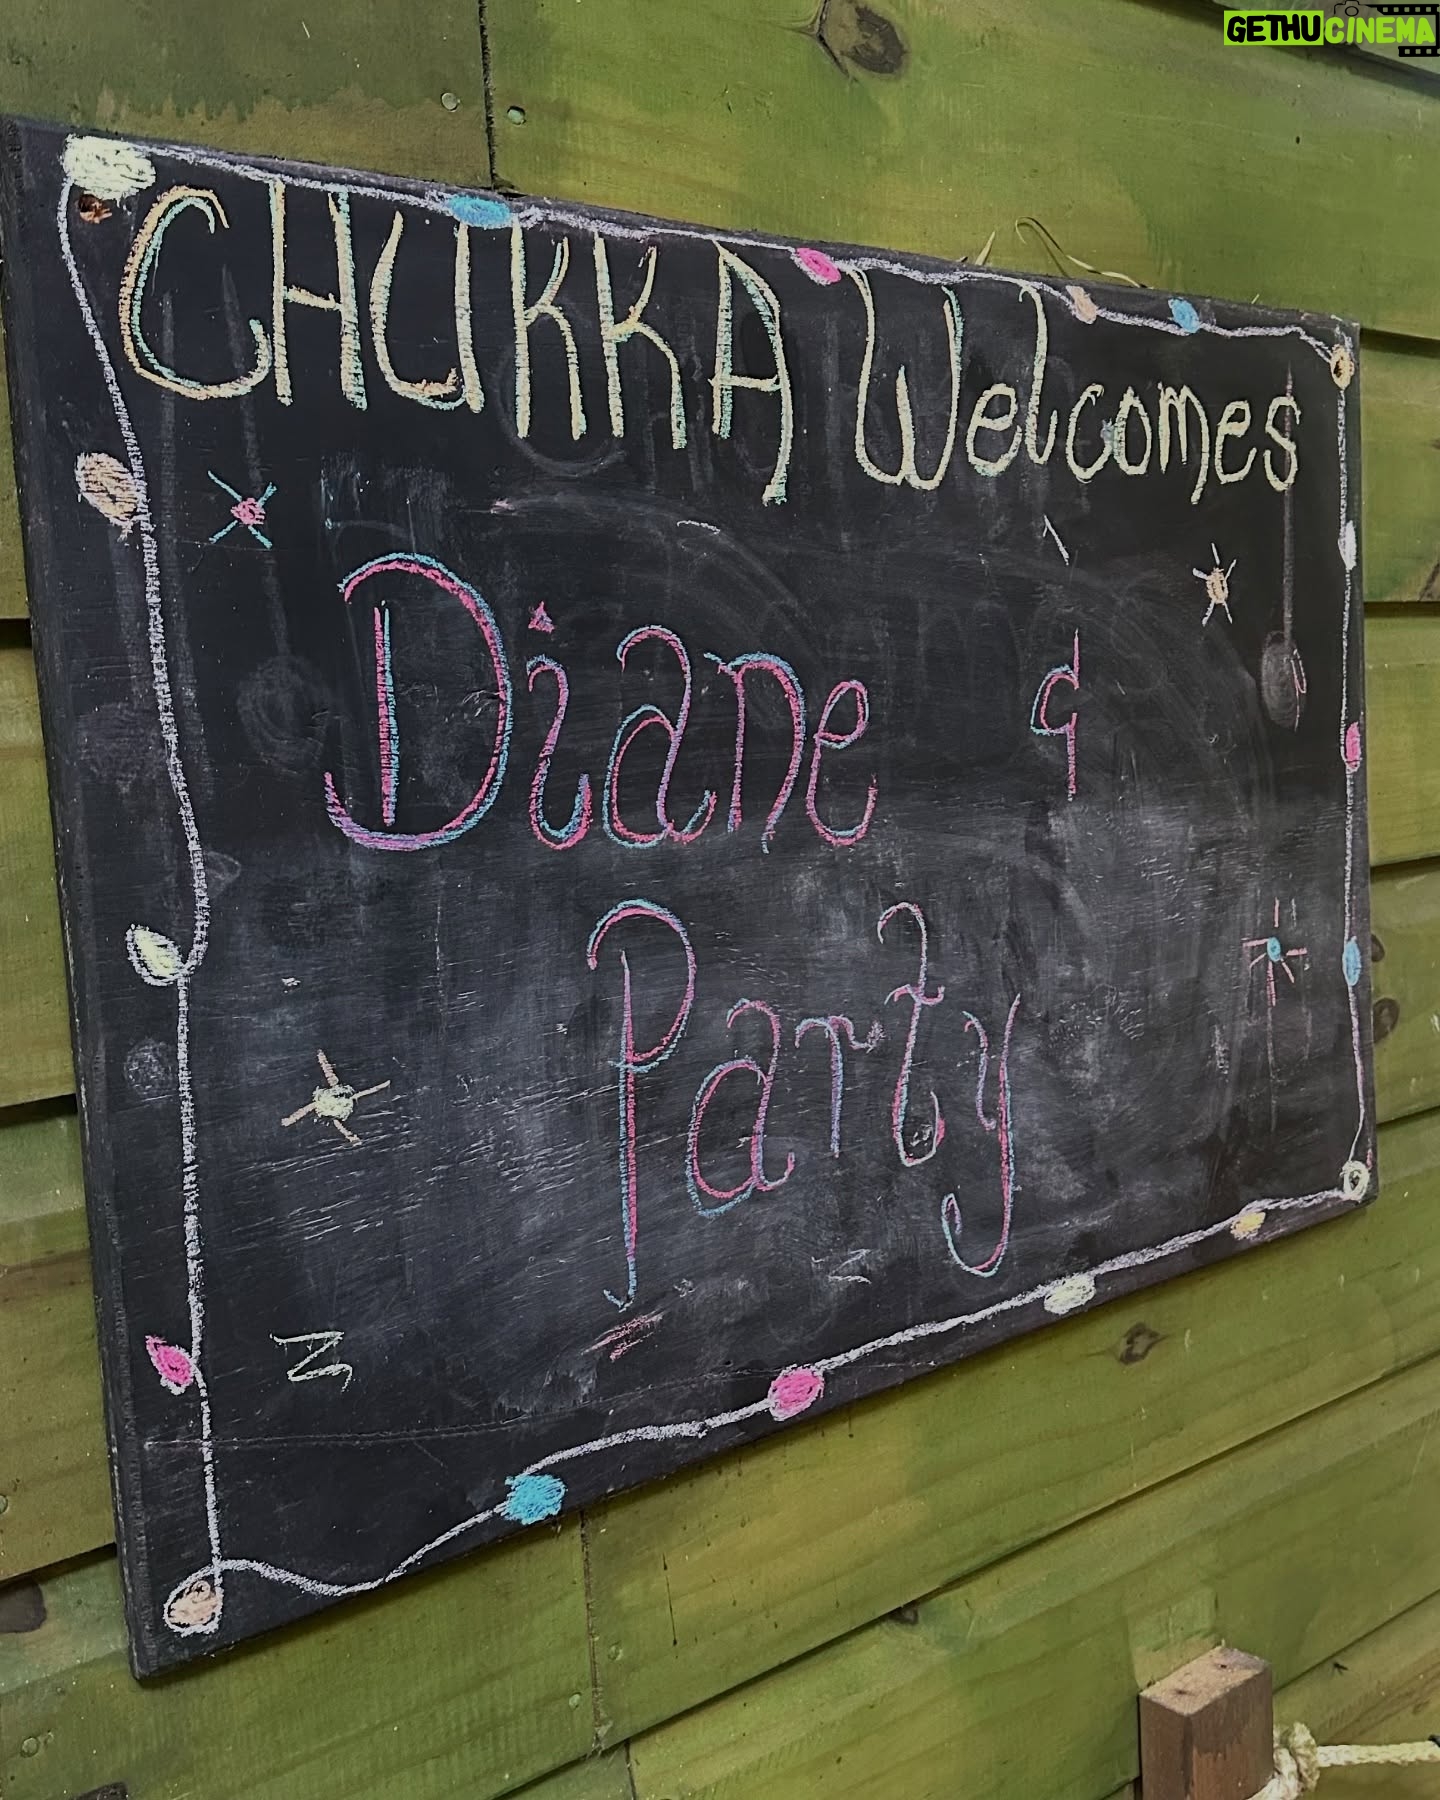 GETHUCINEMA
CHUKKA Welcomes
Diane &
Party